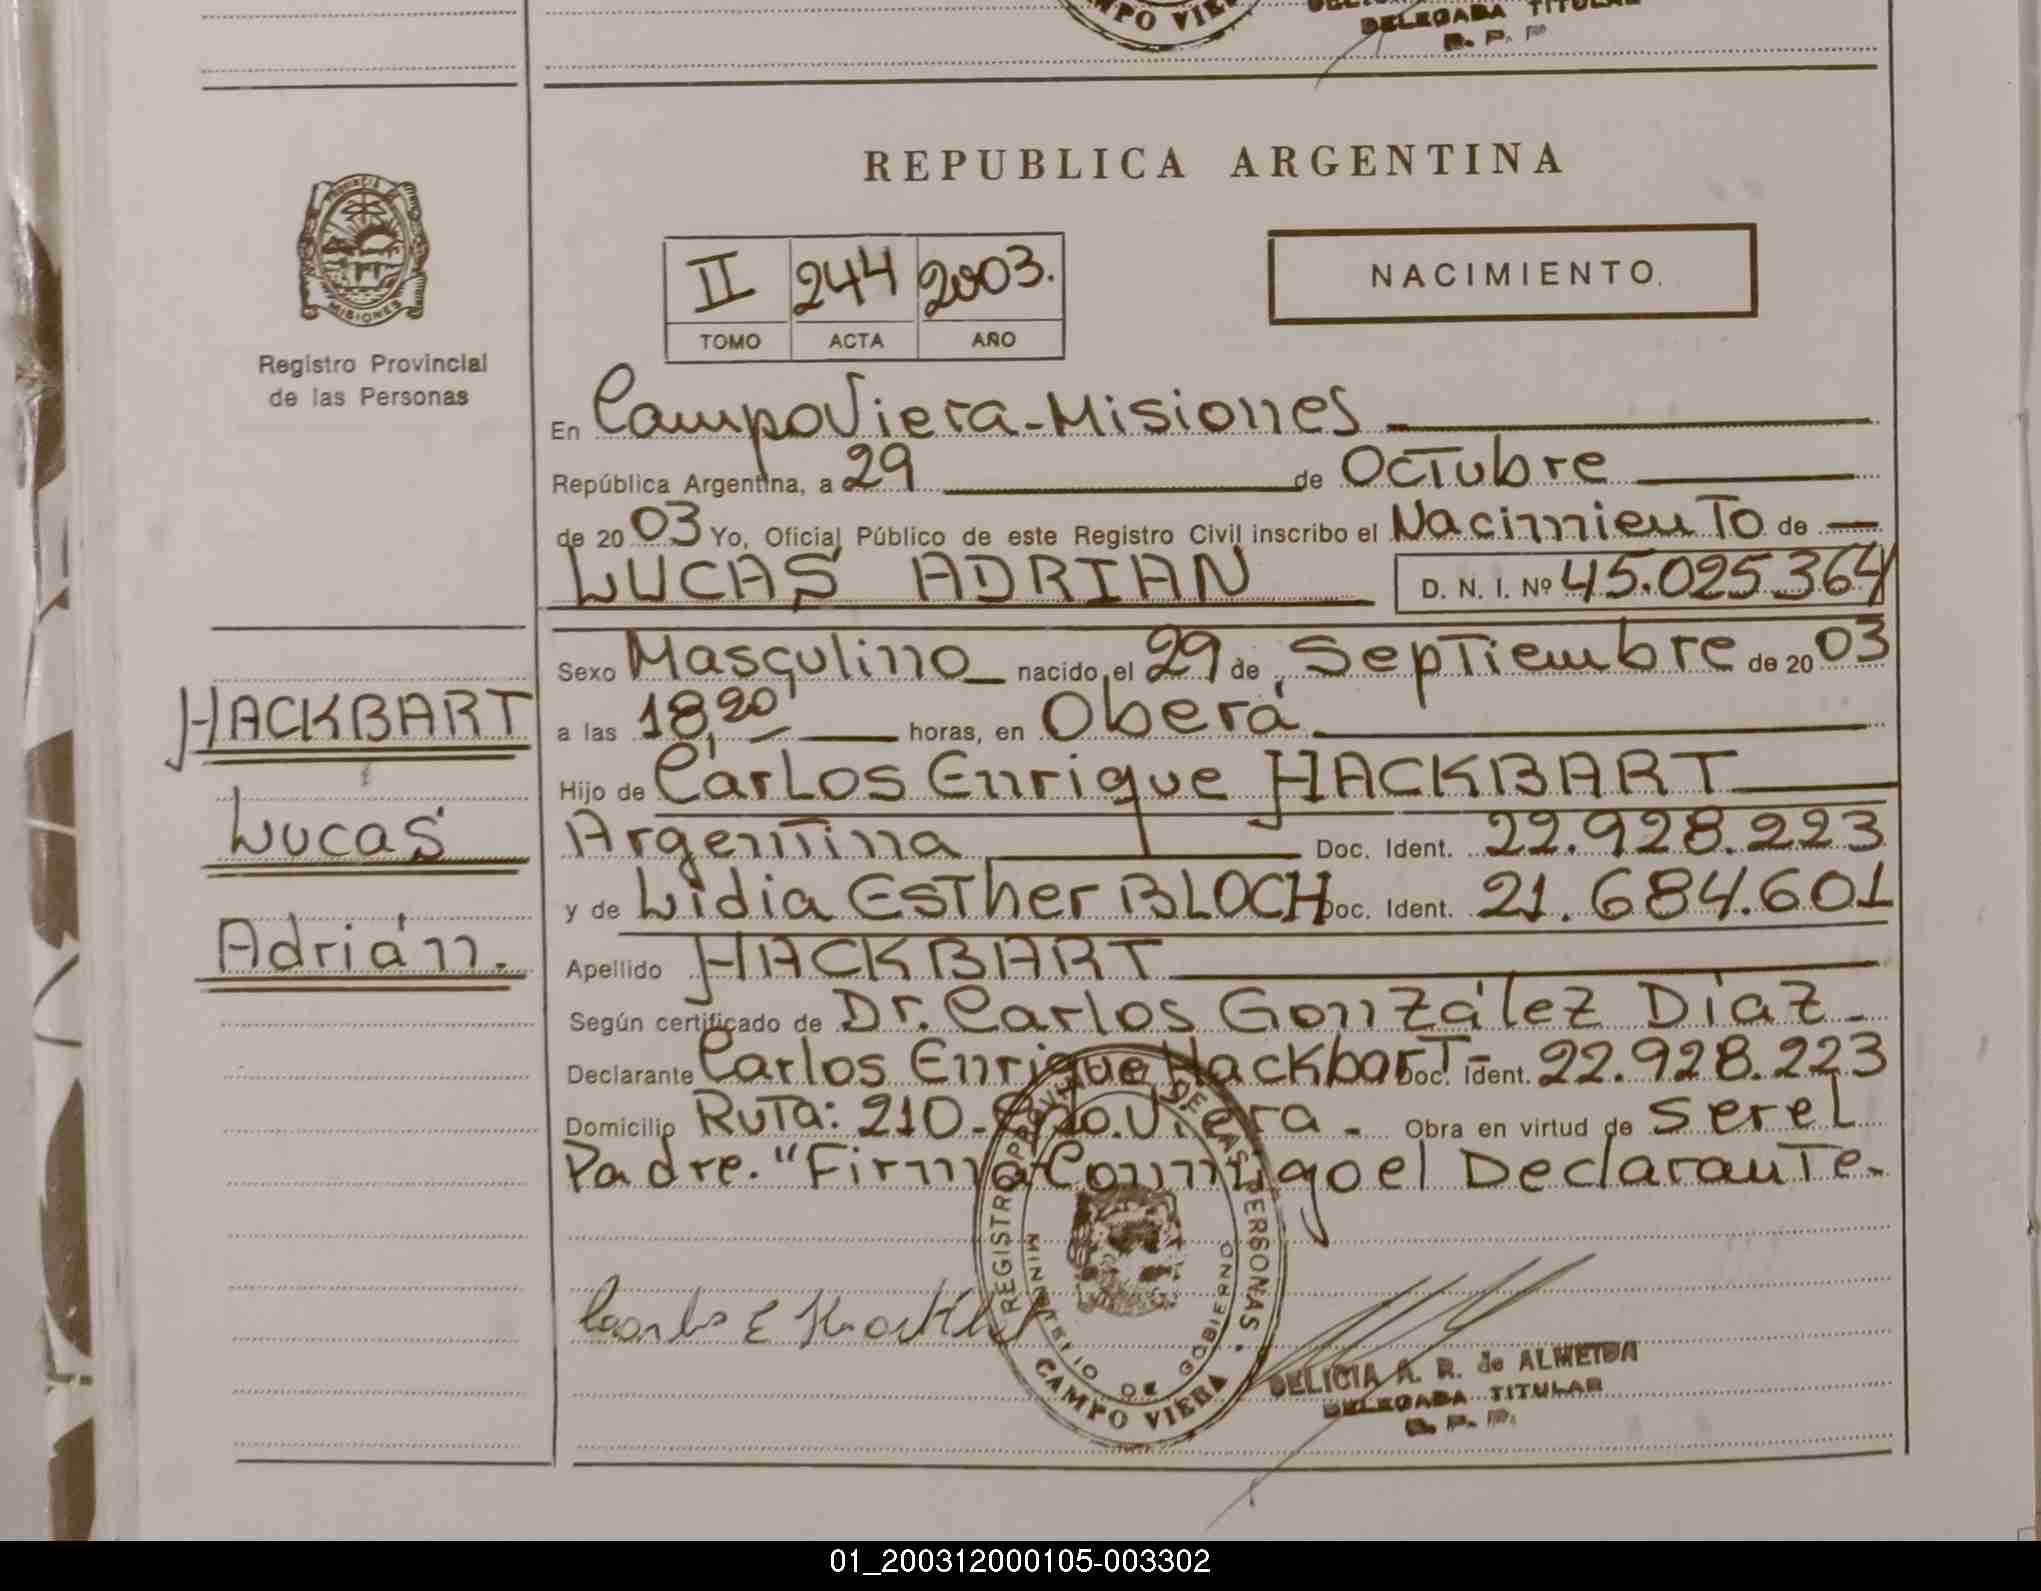 CAMPO VIERA
DELEGADA TITULAR
R. P. P.
REPUBLICA ARGENTINA
PROVINCIA DE
MISIONES
Registro Provincial
de las Personas
II 244 2003.
TOMO ACTA AÑO
NACIMIENTO
En Campo Viera - Misiones
República Argentina, a 29 de Octubre
de 2003 Yo, Oficial Público de este Registro Civil inscribo el Nacimiento de
LUCAS ADRIAN D. N. I. Nº 45.025.364
Sexo Masculino nacido el 29 de Septiembre de 2003
a las 18,20' horas, en Oberá
Hijo de Carlos Enrique HACKBART
Argentina Doc. Ident. 22.928.223
y de Lidia Esther BLOCH Doc. Ident. 21.684.601
Apellido HACKBART
Según certificado de Dr. Carlos González Díaz -
Declarante Carlos Enrique Hackbart - Doc. Ident. 22.928.223
Domicilio Ruta: 210 - Cpo. Viera - Obra en virtud de ser el
Padre. "Firma Conmigo el Declarante -
HACKBART
Lucas
Adrián.
Carlos E Hackbart
REGISTRO PROVINCIAL DE LAS PERSONAS
MINISTERIO DE GOBIERNO
CAMPO VIERA
DELICIA A. R. de ALMEIDA
DELEGADA TITULAR
R. P. P.
01_200312000105-003302